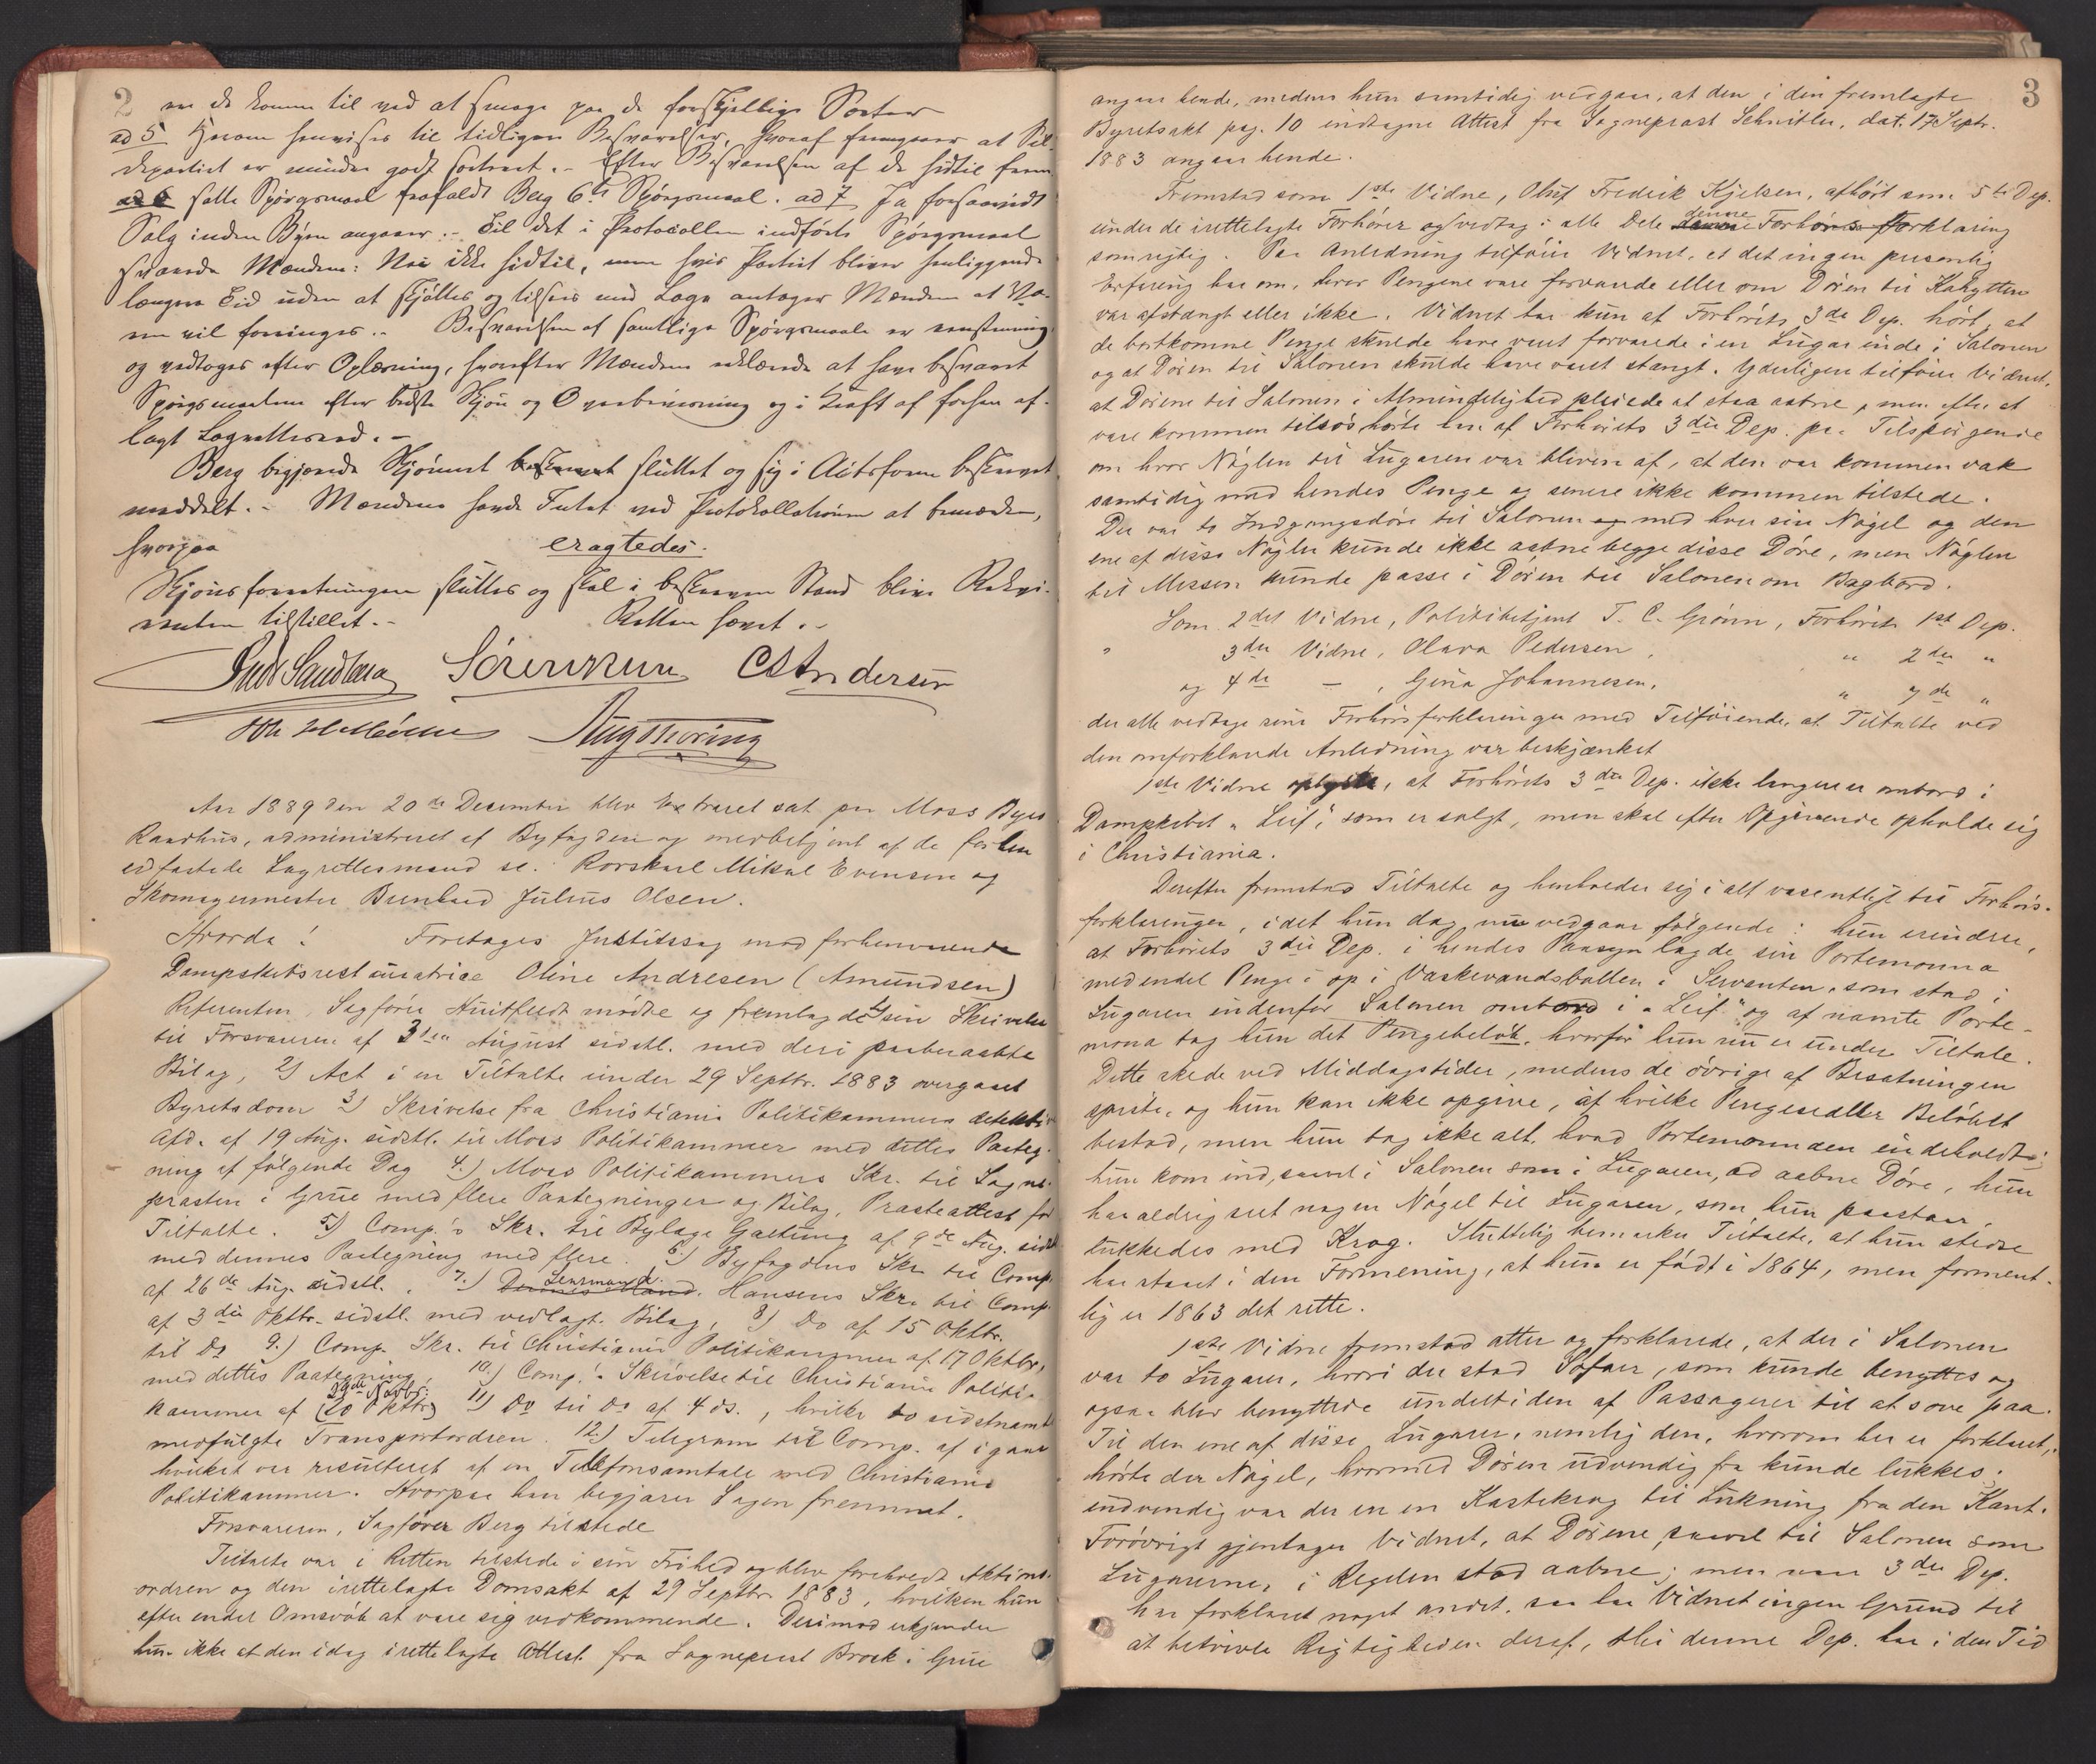 2
en de komme til ved at smage paa de forskjellige Sorter
ad 5 Herom henvises til tidligere Besvarelser, hvoraf fremgaar at Sil-
departiet er mindre godt sorteret. - Efter Besvarelsen af de hidtil frem
ad 6 satte Spørgsmaal frafaldt Berg 6te Spørgsmaal. ad 7 Ja forsaavidt
Salg inden Byen angaaer. - Til det i Protocollen indførte Spørgsmaal
svarede Mændene: Nei ikke hidtil, men hvis Partiet bliver henliggende
længere Tid uden at skjøttes og tilsees med Lage antager Mændene at Va-
ren vil forringes. - Besvarelsen af samtlige Spørgsmaale er eenstemmig
og vedtoges efter Oplæsning, hvorefter Mændene erklærede at have besvaret
Spørgsmaalene efter bedste Skjøn og Overbeviisning og i Kraft af forhen af-
lagt Lagrettesed. -
Berg begjærede Skjønnet sluttet og sig i Actsform beskrevet
meddelt. - Mændene havde Intet ved Protokollationen at bemærke,
hvorpaa eragtedes:
Skjønsforretningen sluttes og skal i beskreven Stand blive Rekvi-
renten tilstillet. - Retten hævet. -
Sørensen CS Andersen
Aar 1889 den 20de December blev Extraret sat paa Moss Byes
Raadhus, administreret af Byfogden og medbetjent af de forhen
edfæstede Lagrettesmænd se. Rorskarl Mikal Evensen og
Skomagermester Bernhard Julius Olsen.
Hvorda! Foretages Justitssag mod forhenværende
Dampskibsrestauratrice Oline Andresen (Amundsen)
Referenten, Sagfører Huitfeldt mødte og fremlagde 1) sin Skrivelse
til Forsvareren af 31te August sidstl. med deri paaberaabte
Bilag, 2) Act i en Tiltalte under 29 Septbr. 1883 overgaaet
Byretsdom 3) Skrivelse fra Christiania Politikammers detektiv
Afd. af 19 Aug. sidstl. til Moss Politikammer med dettes Paateg-
ning af følgende Dag 4.) Moss Politikammers Skr. til Sogne-
præsten i Grue med flere Paategninger og Bilag, Præsteattest for
Tiltalte. 5) Comp.'s Skr. til Bylæge Gjæstung af 9de Aug. sidstl
med dennes Paategning med flere. 6.) Byfogdens Skr. til Comp.
af 26de Aug. sidstl. 7.) Lensmand Hansens Skr. til Comp.
af 3die Oktbr. sidstl. med vedlagt. Bilag, 8) Do af 15 Oktbr.
til Do 9.) Comp. Skr. til Christiania Politikammer af 17 Oktbr,
med dettes Paategning 10.) Comp.'s Skrivelse til Christiania Politi-
29de Novbr.
kammer af (20 Oktbr) 11) Do til Do af 4 ds., hvilke to sidstnævnte
medfulgte Transportordren. 12.) Telegram til Comp. af igaar
hvilket var resulteret af en Telefonsamtale med Christiania
Politikammer. Hvorpaa han begjærer Sagen fremmet.
Forsvareren, Sagfører Berg tilstede
Tiltalte var i Retten tilstede i sin Frihed og blev foreholdt Aktions-
ordren og den irettelagte Domsakt af 29 Septbr 1883, hvilken hun
efter endel Omsvøb at være sig vedkommende. Derimod erkjender
hun ikke at den idag irettelagte Attest fra Sogneprest Brock i Grue
3
angaar hende, medens hun samtidig vedgaar, at den i den fremlagte
Byretsakt pag. 10 indtagne Attest fra Sognepræst Schnitler, dat. 17 Septr.
1883 angaar hende.
Fremstod som 1ste Vidne, Oluf Fredrik Kjelsen, afhørt som 5te Dep.
under de irettelagte Forhører og vedtog i alle Dele denne Forklaring
som rigtig. Paa Anledning tilføier Vidnet, at det ingen personlig
Erfaring har om, hvor Pengene vare forvarede eller om Døren til Kahytten
var afstængt eller ikke. Vidnet har kun af Forhørets 3de Dep. hørt, at
de bortkomne Penge skulde have været forvarede i en Lugar inde i Salonen
og at Døren til Salonen skulde have været stængt. Yderligere tilføier Vidnet,
at Dørene til Salonen i Almindelighed pleiede at staa aabne, men efter at
vare kommen tilsøs hørte han af Forhørets 3die Dep. paa Tilspørgende
om hvor Nøglen til Lugaren var bleven af, at den var kommen væk
samtidig med hendes Penge og senere ikke kommen tilstede.
Der var to Indgangsdøre til Salonen med hver sin Nøgel og den
ene af disse Nøgler kunde ikke aabne begge disse Døre, men Nøglen
til Messen kunde passe i Døren til Salonen om Bagbord.
Som 2det Vidne, Politibetjent T. C. Grønn, Forhørets 1ste Dep.
" 3die Vidne, Olava Pedersen, " 2den "
og 4de — , Gina Johannesen, " 4de "
der alle vedtage sine Forhørsforklaringer med Tilføiende, at Tiltalte ved
den omforklarede Anledning var beskjænket
1ste Vidne oplyste, at Forhørets 3die Dep. ikke længere er ombord i
Dampskibet "Leif", som er solgt, men skal efter Opgivende opholde sig
i Christiania.
Derefter fremstod Tiltalte og henholder sig i alt væsentligt til Forhørs-
forklaringen, idet hun dog nu vedgaar følgende: hun erindrer,
at Forhørets 3die Dep. i hendes Paasyn lagde sin Portemonna
med endel Penge i op i Vaskevandsbollen i Servanten, som stod i
Lugaren indenfor Salonen ombord i "Leif" og af nævnte Porte-
mona tog hun det Pengebeløb, hvorfor hun nu er under Tiltale.
Dette skede ved Middagstider, medens de øvrige af Besætningen
spiste, og hun kan ikke opgive, af hvilke Pengesedler Beløbet
bestod, men hun tog ikke alt, hvad Portemonnaen indeholdt;
hun kom ind, saavel i Salonen som i Lugaren, ad aabne Døre, hun
har aldrig seet nogen Nøgel til Lugaren, som hun paastaar,
lukkedes med Krog. Sluttelig bemærker Tiltalte, at hun stedse
har staaet i den Formening, at hun er født i 1864, men forment-
lig er 1863 det rette.
1ste Vidne fremstod atter og forklarede, at der i Salonen
var to Lugarer, hvori der stod Sofaer, som kunde benyttes og
ogsaa blev benyttede undertiden af Passagerer til at sove paa.
Til den ene af disse Lugarer, nemlig den, hvorom her er forklaret,
hørte der Nøgel, hvormed Døren udvendig fra kunde lukkes;
indvendig var der en en Kastekrog til Lukning fra den Kant.
Forøvrigt gjentager Vidnet, at Dørene, saavel til Salonen som
Lugarerne, i Regelen stod aabne; men naar 3die Dep.
har forklaret noget andet, saa har Vidnet ingen Grund til
at betvivle Rigtigheden deraf, thi denne Dep. har i den Tid